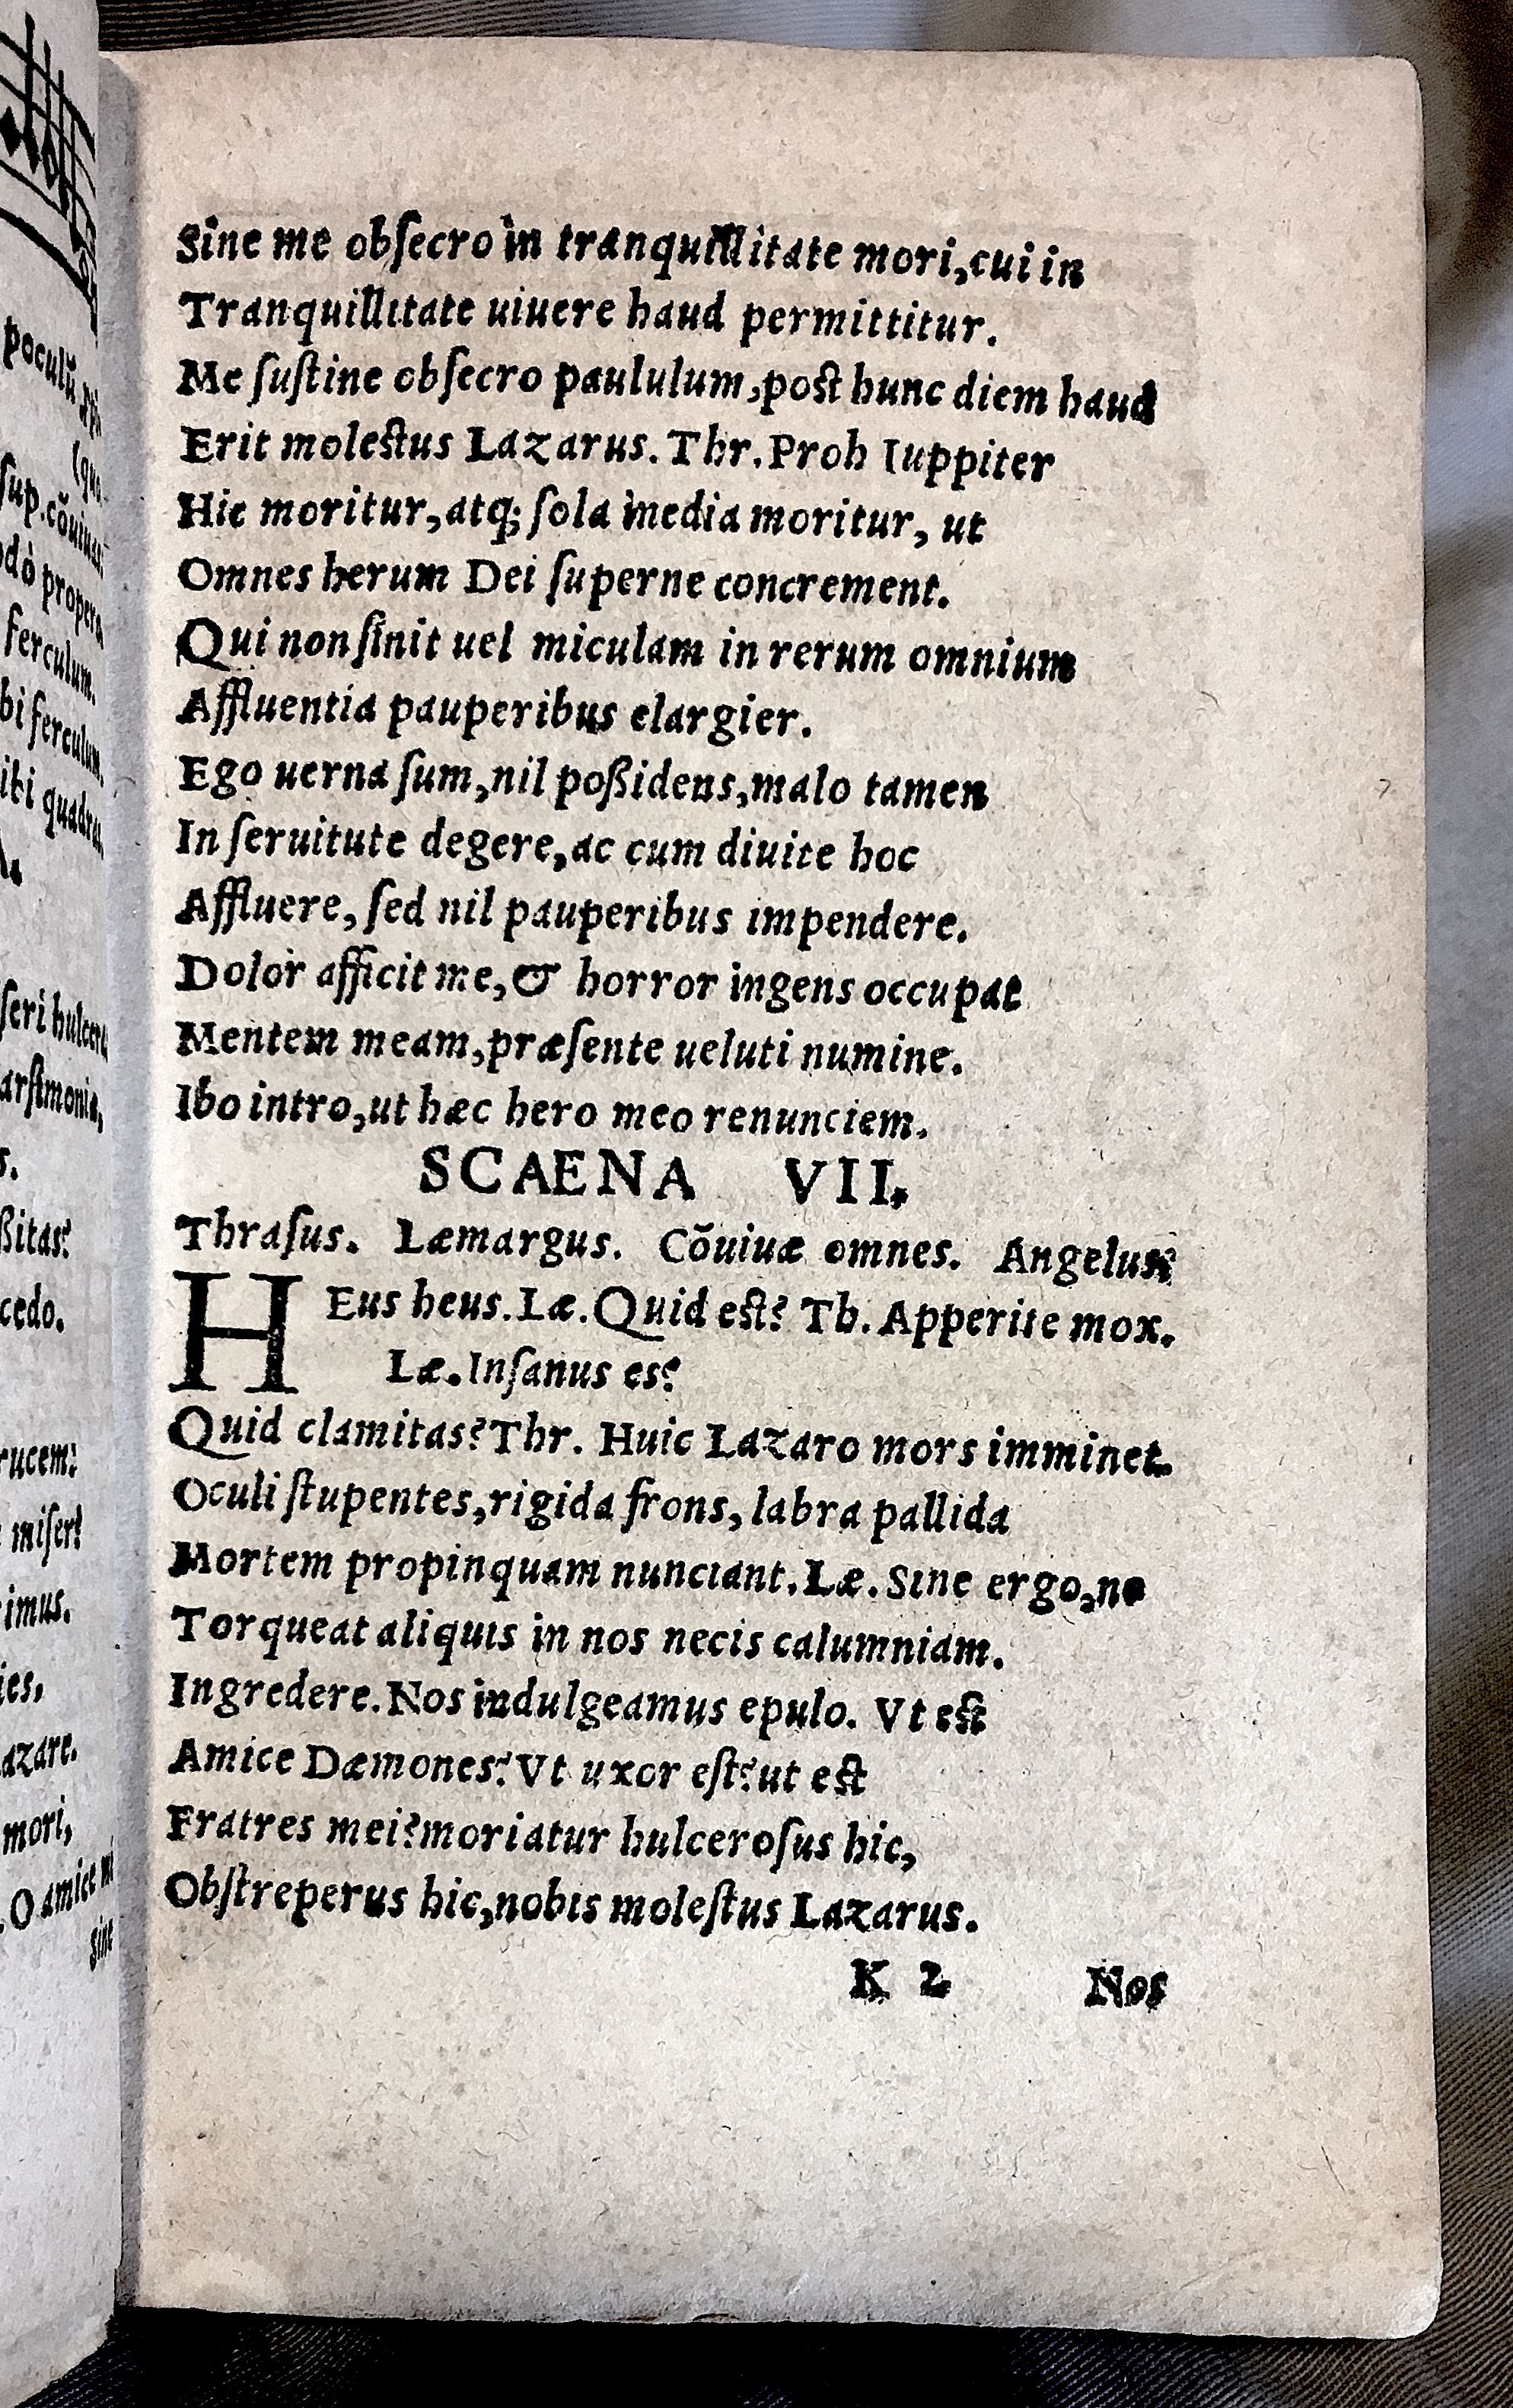 poculũ
(quo
sup. cõuiuas
propera
ferculum.
bi ferculum.
ibi
seri hulcera
s.
cedo.
rucem:
imus.
ies,
azare.
mori,
O amice mi
sine
Sine me obſecro in tranquillitate mori, cui in
Tranquillitate uiuere haud permittitur.
Me ſuſtine obſecro paululum, poſt hunc diem haud
Erit moleſtus Lazarus. Thr. Proh Iuppiter
Hic moritur, atq; ſola inedia moritur, ut
Omnes herum Dei ſuperne concrement.
Qui non ſinit uel miculam in rerum omnium
Affluentia pauperibus elargier.
Ego uerna ſum, nil poßidens, malo tamen
In ſeruitute degere, ac cum diuite hoc
Affluere, ſed nil pauperibus impendere.
Dolor afficit me, & horror ingens occupat
Mentem meam, præſente ueluti numine.
Ibo intro, ut hæc hero meo renunciem.
SCAENA VII.
Thraſus. Læmargus. Cõuiuæ omnes. Angelus.
HEus heus. Læ. Quid eſt? Th. Apperite mox.
Læ. Inſanus es?
Quid clamitas? Thr. Huic Lazaro mors imminet.
Oculi ſtupentes, rigida frons, labra pallida
Mortem propinquam nunciant. Læ. Sine ergo, ne
Torqueat aliquis in nos necis calumniam.
Ingredere. Nos indulgeamus epulo. Vt eſt
Amice Dæmones? Vt uxor eſt? ut eſt
Fratres mei? moriatur hulceroſus hic,
Obſtreperus hic, nobis moleſtus Lazarus.
K 2 Nos